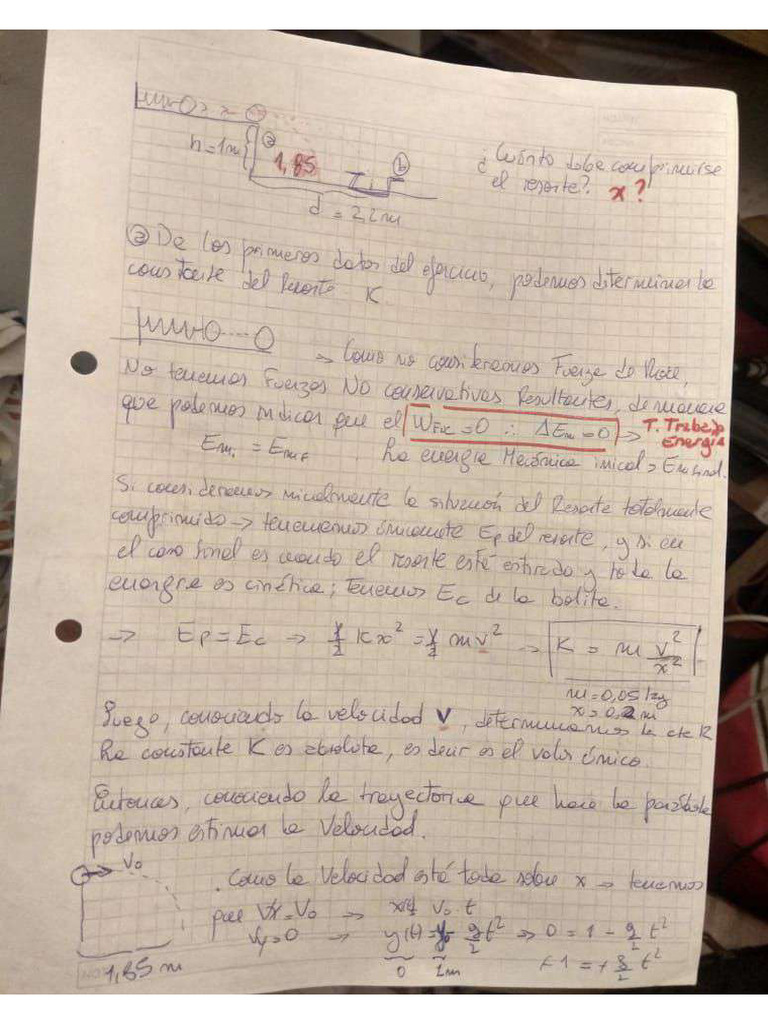 h=1m
a
1,85
b
d = 2,2m
¿Cuánto debe comprimirse
el resorte? x?
a De los primeros datos del ejercicio, podemos determinar la
constante del Resorte K
→ Como no consideramos Fuerza de Roce,
No tenemos Fuerzas No conservativas Resultantes, de manera
que podemos indicar que el W =0 ∴ ΔEm=0 → T. Trabajo Energía
Emi = Emf La energía Mecánica inicial = Em final.
Si consideramos inicialmente la situación del Resorte totalmente
comprimido → tenemos únicamente Ep del resorte, y si en
el caso final es cuando el resorte esté estirado y toda la
energía es cinética; tenemos Ec de la bolita.
→ Ep = Ec → 1/2 Kx² = 1/2 mv² → K = m v²/x²
m=0,05 kg
x=0,2m
Luego, conociendo la velocidad V, determinamos la cte K
La constante K es absoluta, es decir es el valor único.
Entonces, conociendo la trayectoria que hace la parábola
podemos estimar la Velocidad.
V₀
. Como la Velocidad está toda sobre x → tenemos
que Vx=V₀ → V₀ t
Vy=0 → y(t) = y₀ - g/2 t² ⇒ 0 = 1 - g/2 t²
0 1m
-1 = - g/2 t²
1,85 m